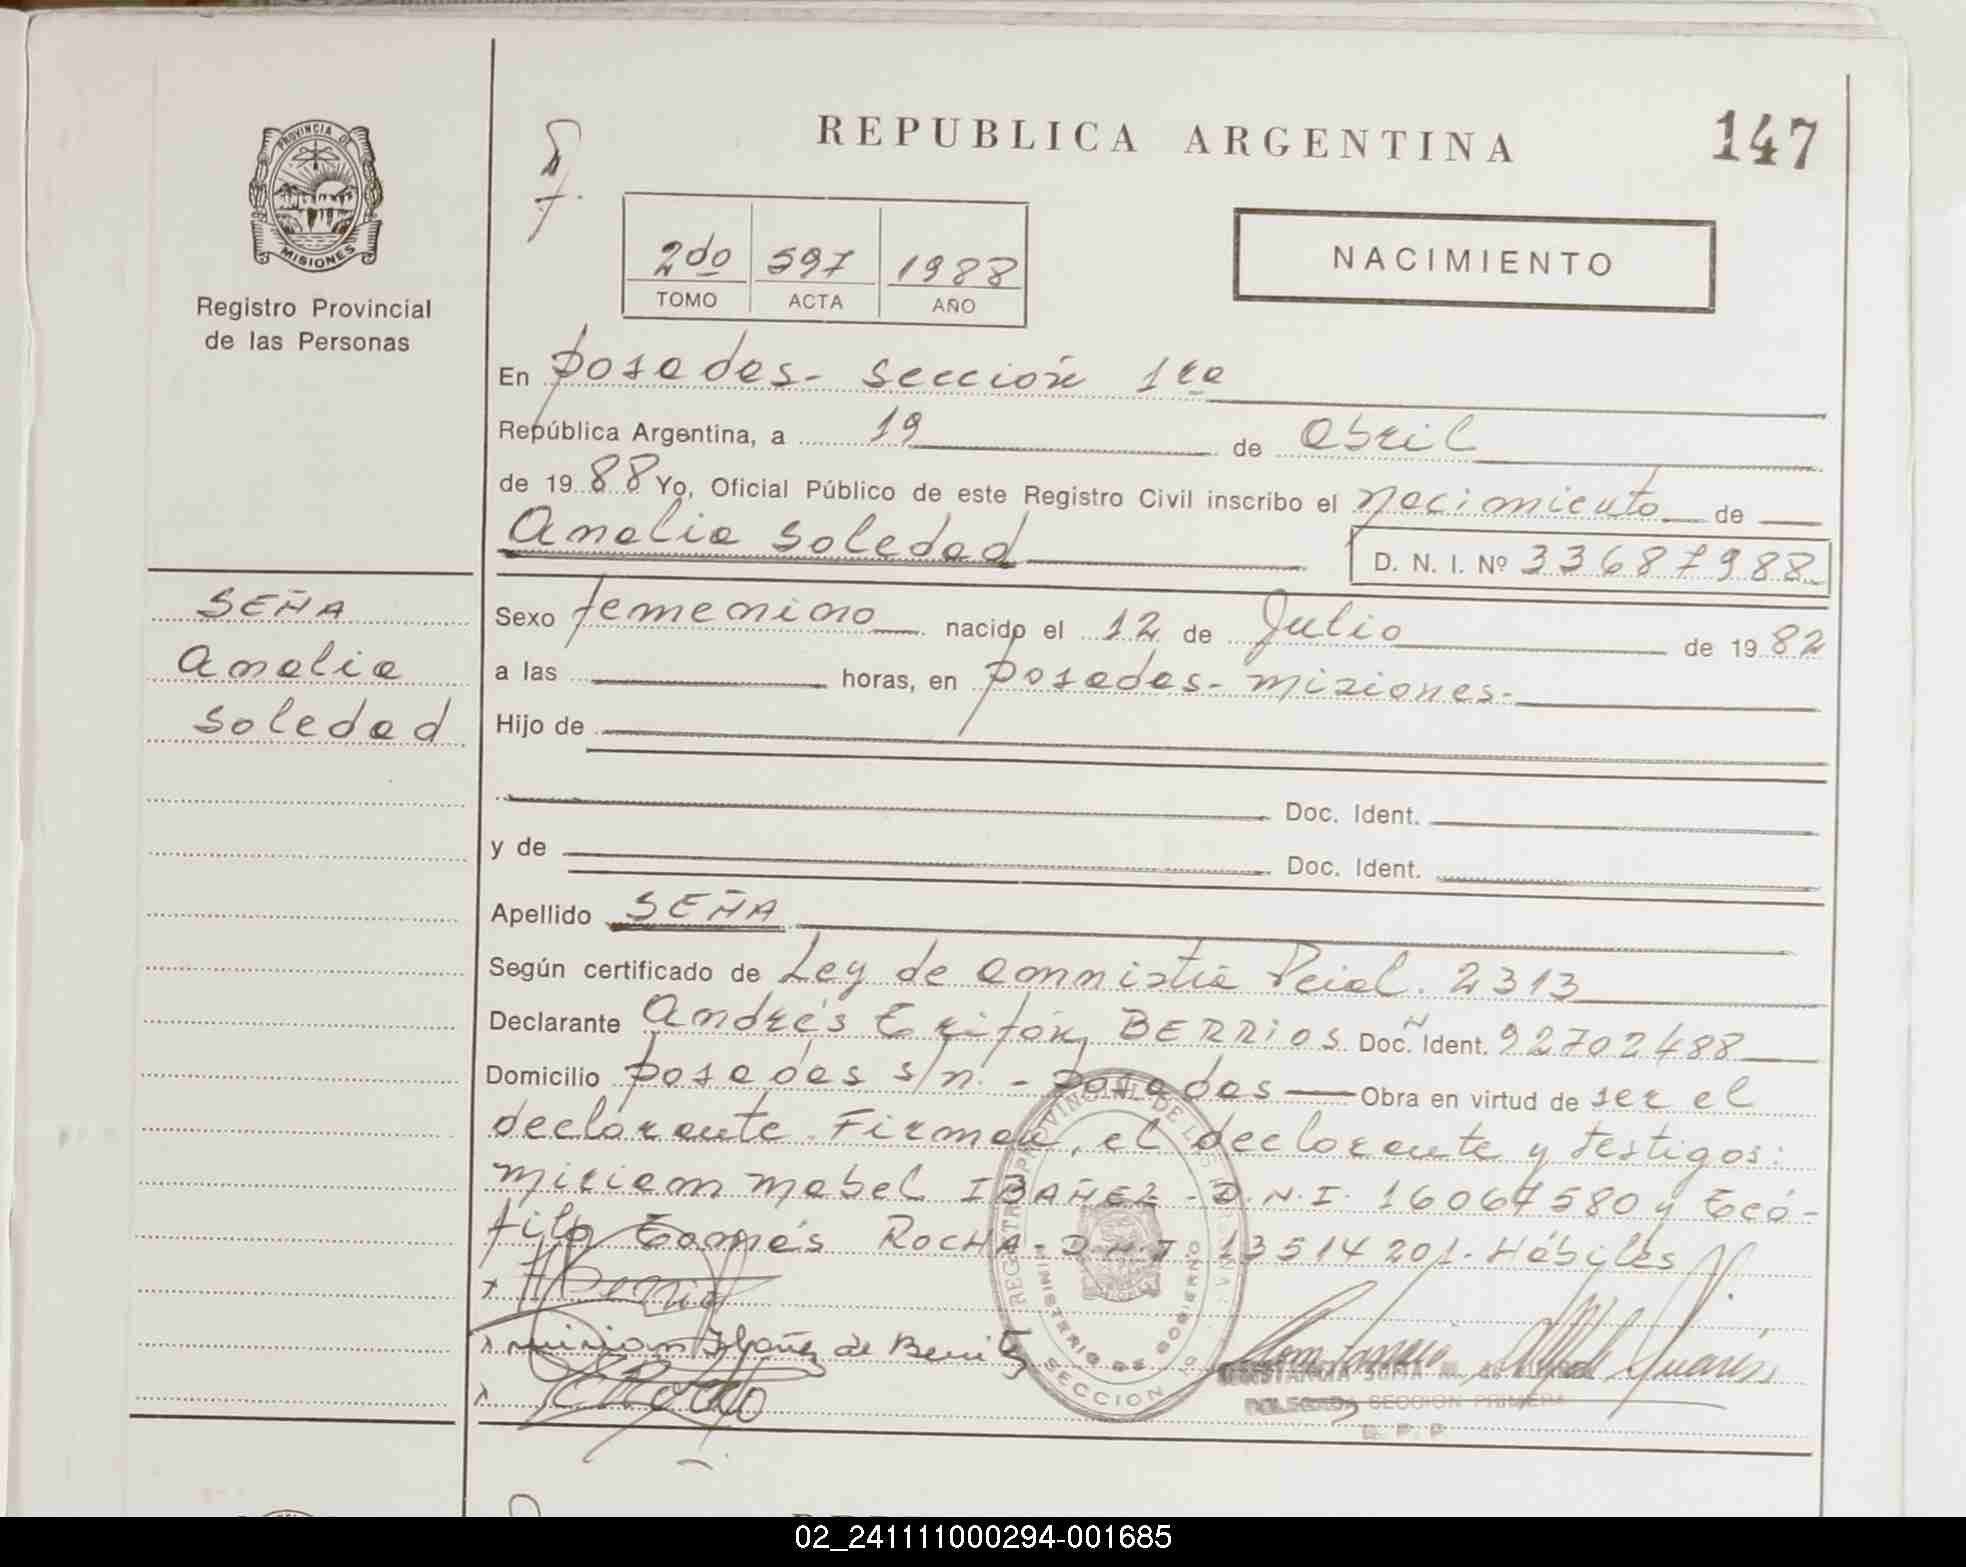 REPUBLICA ARGENTINA
147
PROVINCIA DE
MISIONES
Registro Provincial
de las Personas
2do 597 1988
TOMO ACTA AÑO
NACIMIENTO
En posadas- sección 1ra
República Argentina, a 19 de abril
de 1988 Yo, Oficial Público de este Registro Civil inscribo el nacimiento de
Analia Soledad
D. N. I. Nº 33687988
SEÑA
Analia
Soledad
Sexo femenino nacido el 12 de Julio de 1982
a las horas, en posadas- misiones-
Hijo de
Doc. Ident.
y de Doc. Ident.
Apellido SEÑA
Según certificado de Ley de amnistía Pcial. 2313
Declarante Andrés BERRIOS Doc. Ident. 92702488
Domicilio posadas s/n. - posadas Obra en virtud de ser el
declarante. Firman, el declarante y testigos:
miriam mabel IBAÑEZ - D.N.I. 16067580 y Teó-
filo Tomés ROCHA - D.N.I. 13514201. Hábiles
x
x Miriam Ibañez de Benitez
x
REGISTRO PROVINCIAL DE LAS PERSONAS
MINISTERIO DE GOBIERNO
SECCION 1ª
DELEGADA SECCION PRIMERA
R. P. P.
02_241111000294-001685